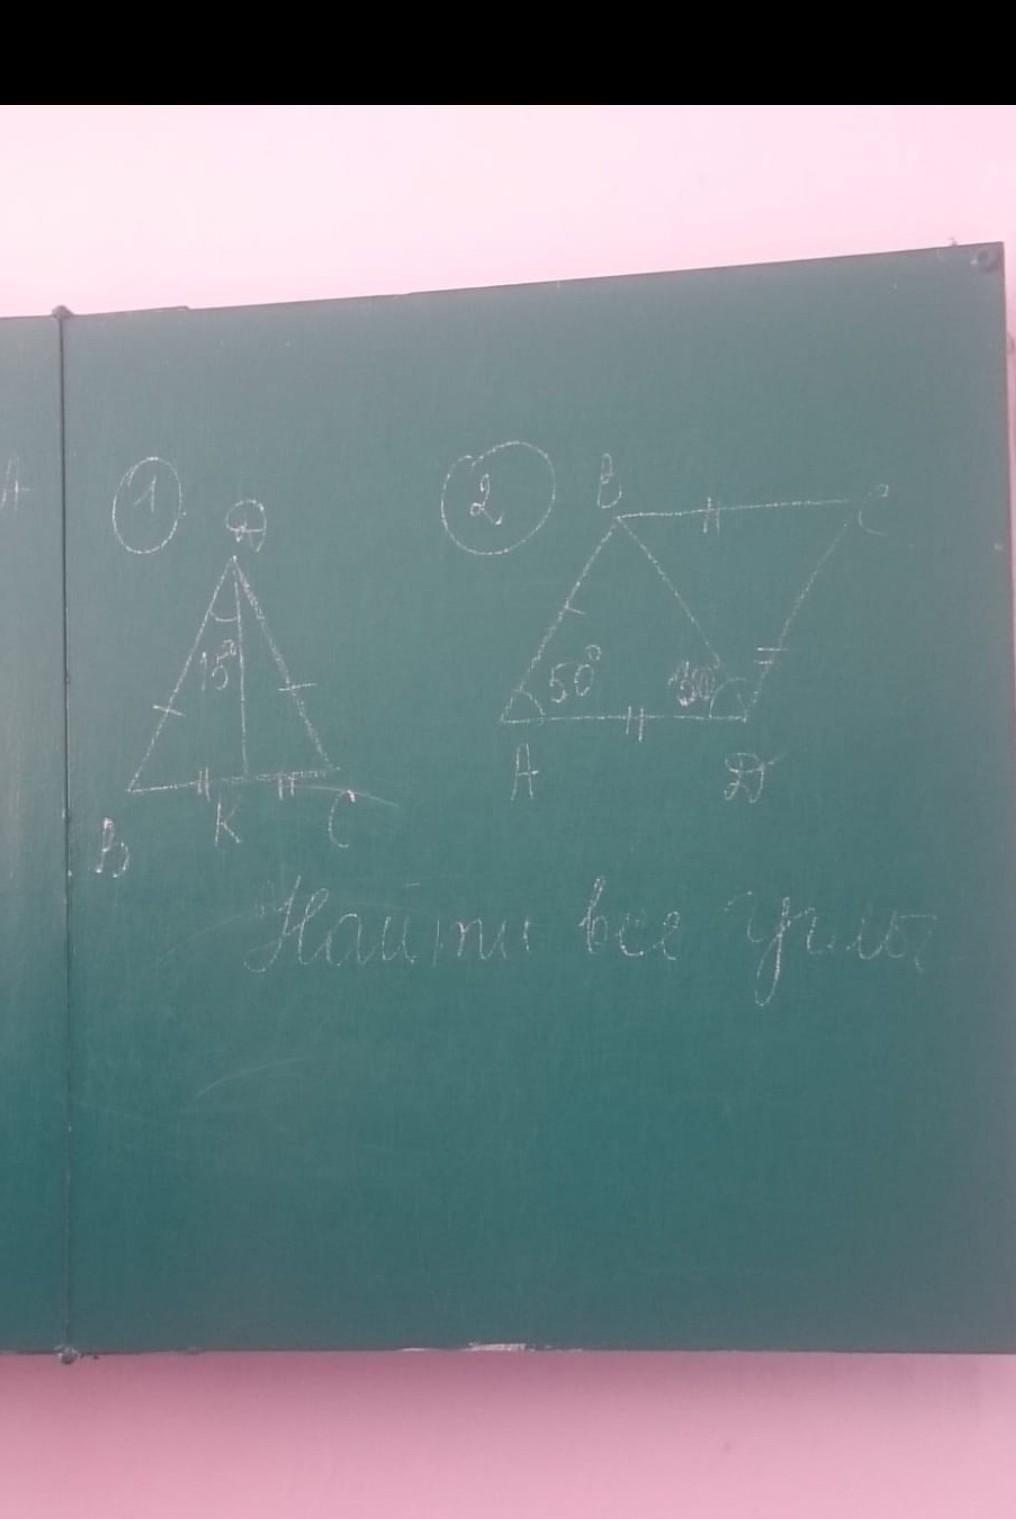 A
1
D
15°
B
K
C
2
B
C
50°
A
D
Найти все углы